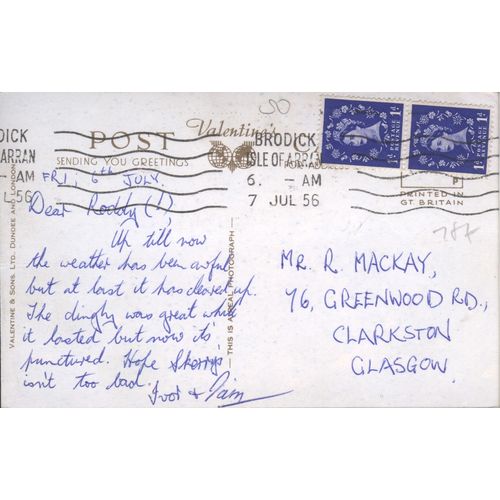 POST
Valentine's
SENDING YOU GREETINGS
BRODICK
ISLE OF ARRAN
6. - AM
7 JUL 56
DICK
ARRAN
- AM
L 56
1D
POSTAGE REVENUE
1D
1D
POSTAGE REVENUE
1D
PRINTED IN
GT. BRITAIN
VALENTINE & SONS. LTD. DUNDEE AND LONDON
THIS IS A REAL PHOTOGRAPH
FRI, 6th JULY.
Dear Roddy (!),
Up till now
the weather has been awful
but at least it has cleared up.
The dinghy was great while
it lasted but now it's
punctured. Hope
isn't too bad.
Ivor &
MR. R. MACKAY,
76, GREENWOOD RD.,
CLARKSTON
GLASGOW.